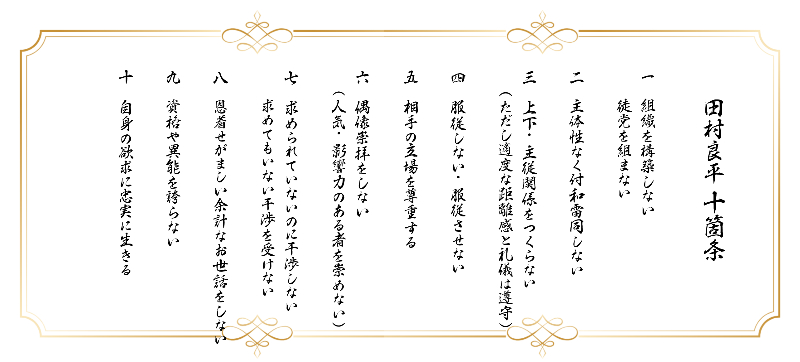 田村良平 十箇条
一 組織を構築しない
徒党を組まない
二 主体性なく付和雷同しない
三 上下・主従関係をつくらない
(ただし適度な距離感と礼儀は遵守)
四 服従しない・服従させない
五 相手の立場を尊重する
六 偶像崇拝をしない
(人気・影響力のある者を崇めない)
七 求められていないのに干渉しない
求めてもいない干渉を受けない
八 恩着せがましい余計なお世話をしない
九 資格や異能を誇らない
十 自身の欲求に忠実に生きる